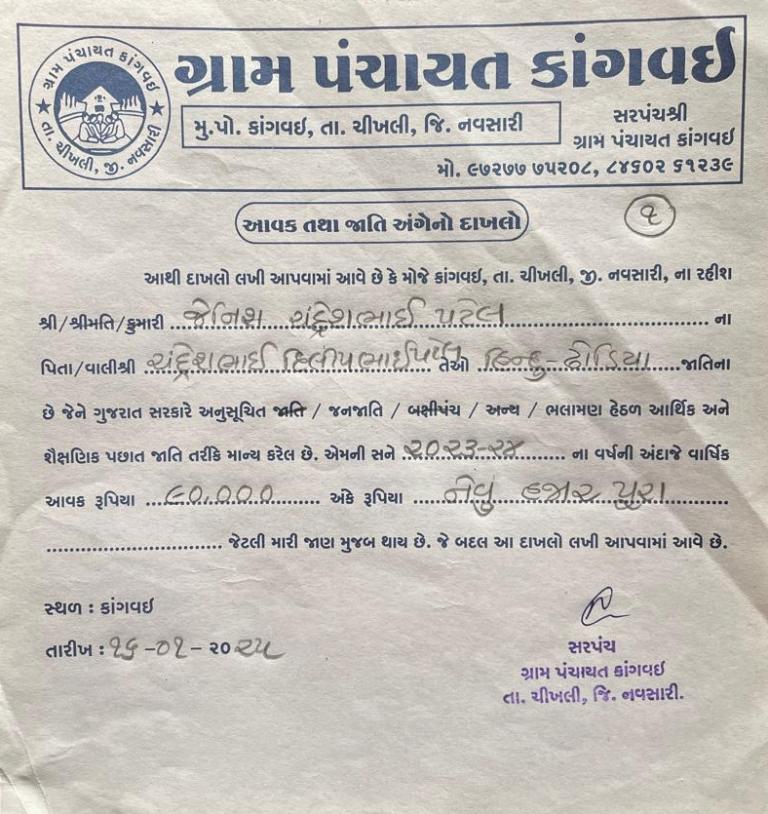 ગ્રામ પંચાયત કાંગવઈ
તા. ચીખલી, જી. નવસારી
ગ્રામ પંચાયત કાંગવઈ
મુ.પો. કાંગવઇ, તા. ચીખલી, જિ. નવસારી
સરપંચશ્રી
ગ્રામ પંચાયત કાંગવઇ
મો. ૯૭૨૭૭ ૭૫૨૦૮, ૮૪૬૦૨ ૬૧૨૩૯
આવક તથા જાતિ અંગેનો દાખલો
૧
આથી દાખલો લખી આપવામાં આવે છે કે મોજે કાંગવઇ, તા. ચીખલી, જી. નવસારી, ના રહીશ
શ્રી/શ્રીમતિ/કુમારી જેનિશ ચંદ્રેશભાઈ પટેલ ના
પિતા/વાલીશ્રી ચંદ્રેશભાઈ દિલીપભાઈ પટેલ તેઓ હિન્દુ-ઢોડિયા જાતિના
છે જેને ગુજરાત સરકારે અનુસૂચિત જાતિ / જનજાતિ / બક્ષીપંચ / અન્ય / ભલામણ હેઠળ આર્થિક અને
શૈક્ષણિક પછાત જાતિ તરીકે માન્ય કરેલ છે. એમની સને ૨૦૨૩-૨૪ ના વર્ષની અંદાજે વાર્ષિક
આવક રૂપિયા ૯૦,૦૦૦ અંકે રૂપિયા નેવુ હજાર પુરા
જેટલી મારી જાણ મુજબ થાય છે. જે બદલ આ દાખલો લખી આપવામાં આવે છે.
સ્થળ : કાંગવઇ
તારીખ : ૧૬-૦૧-૨૦૨૫
સરપંચ
ગ્રામ પંચાયત કાંગવઇ
તા. ચીખલી, જિ. નવસારી.